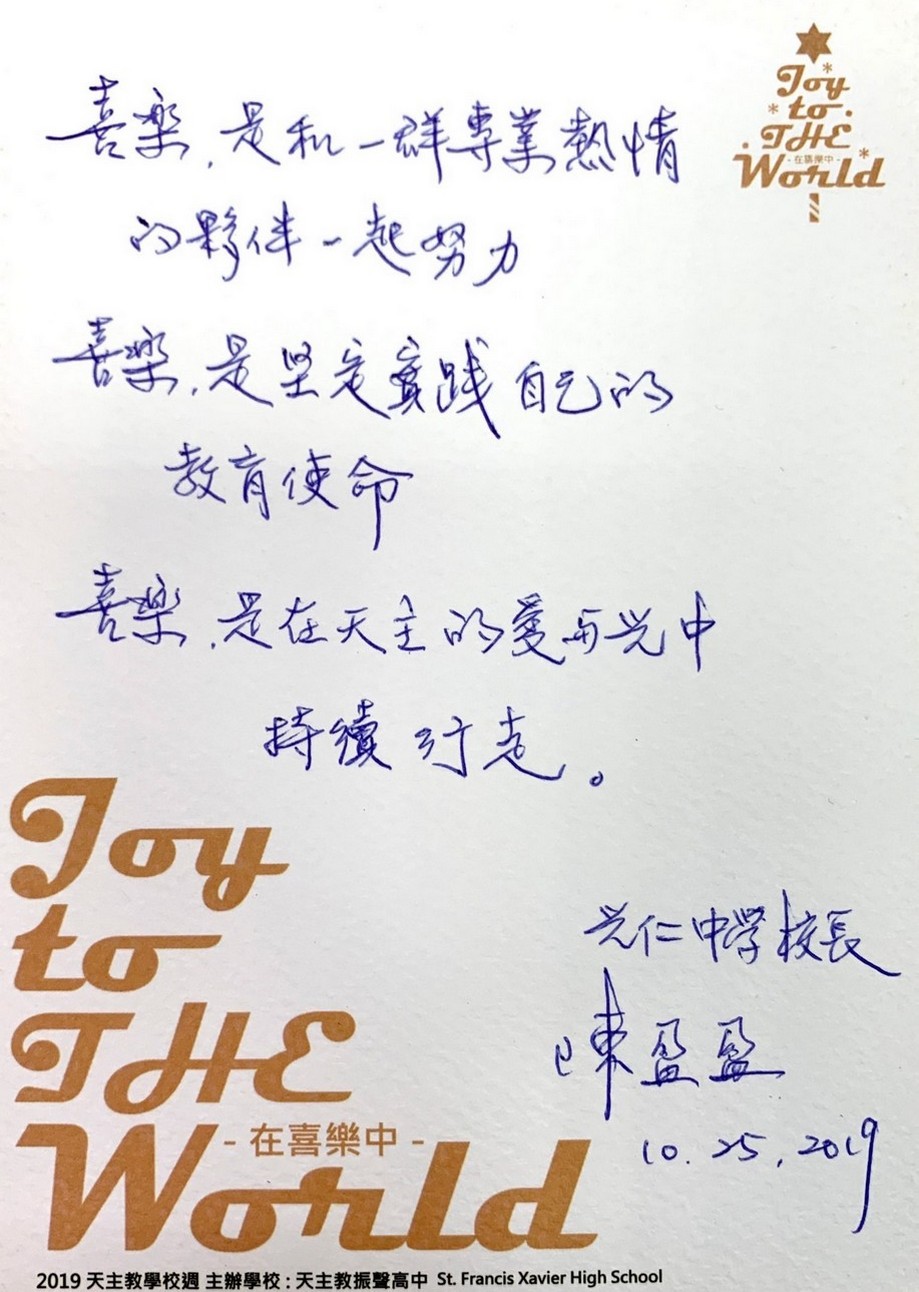 Joy
to
THE
- 在喜樂中 -
World
喜樂，是和一群專業熱情
的夥伴一起努力
喜樂，是坚定實踐自己的
教育使命
喜樂，是在天主的愛与光中
持續行走。
光仁中學校長
陳盈盈
10.25,2019
Joy
to
THE
- 在喜樂中 -
World
2019 天主教學校週 主辦學校 : 天主教振聲高中 St. Francis Xavier High School